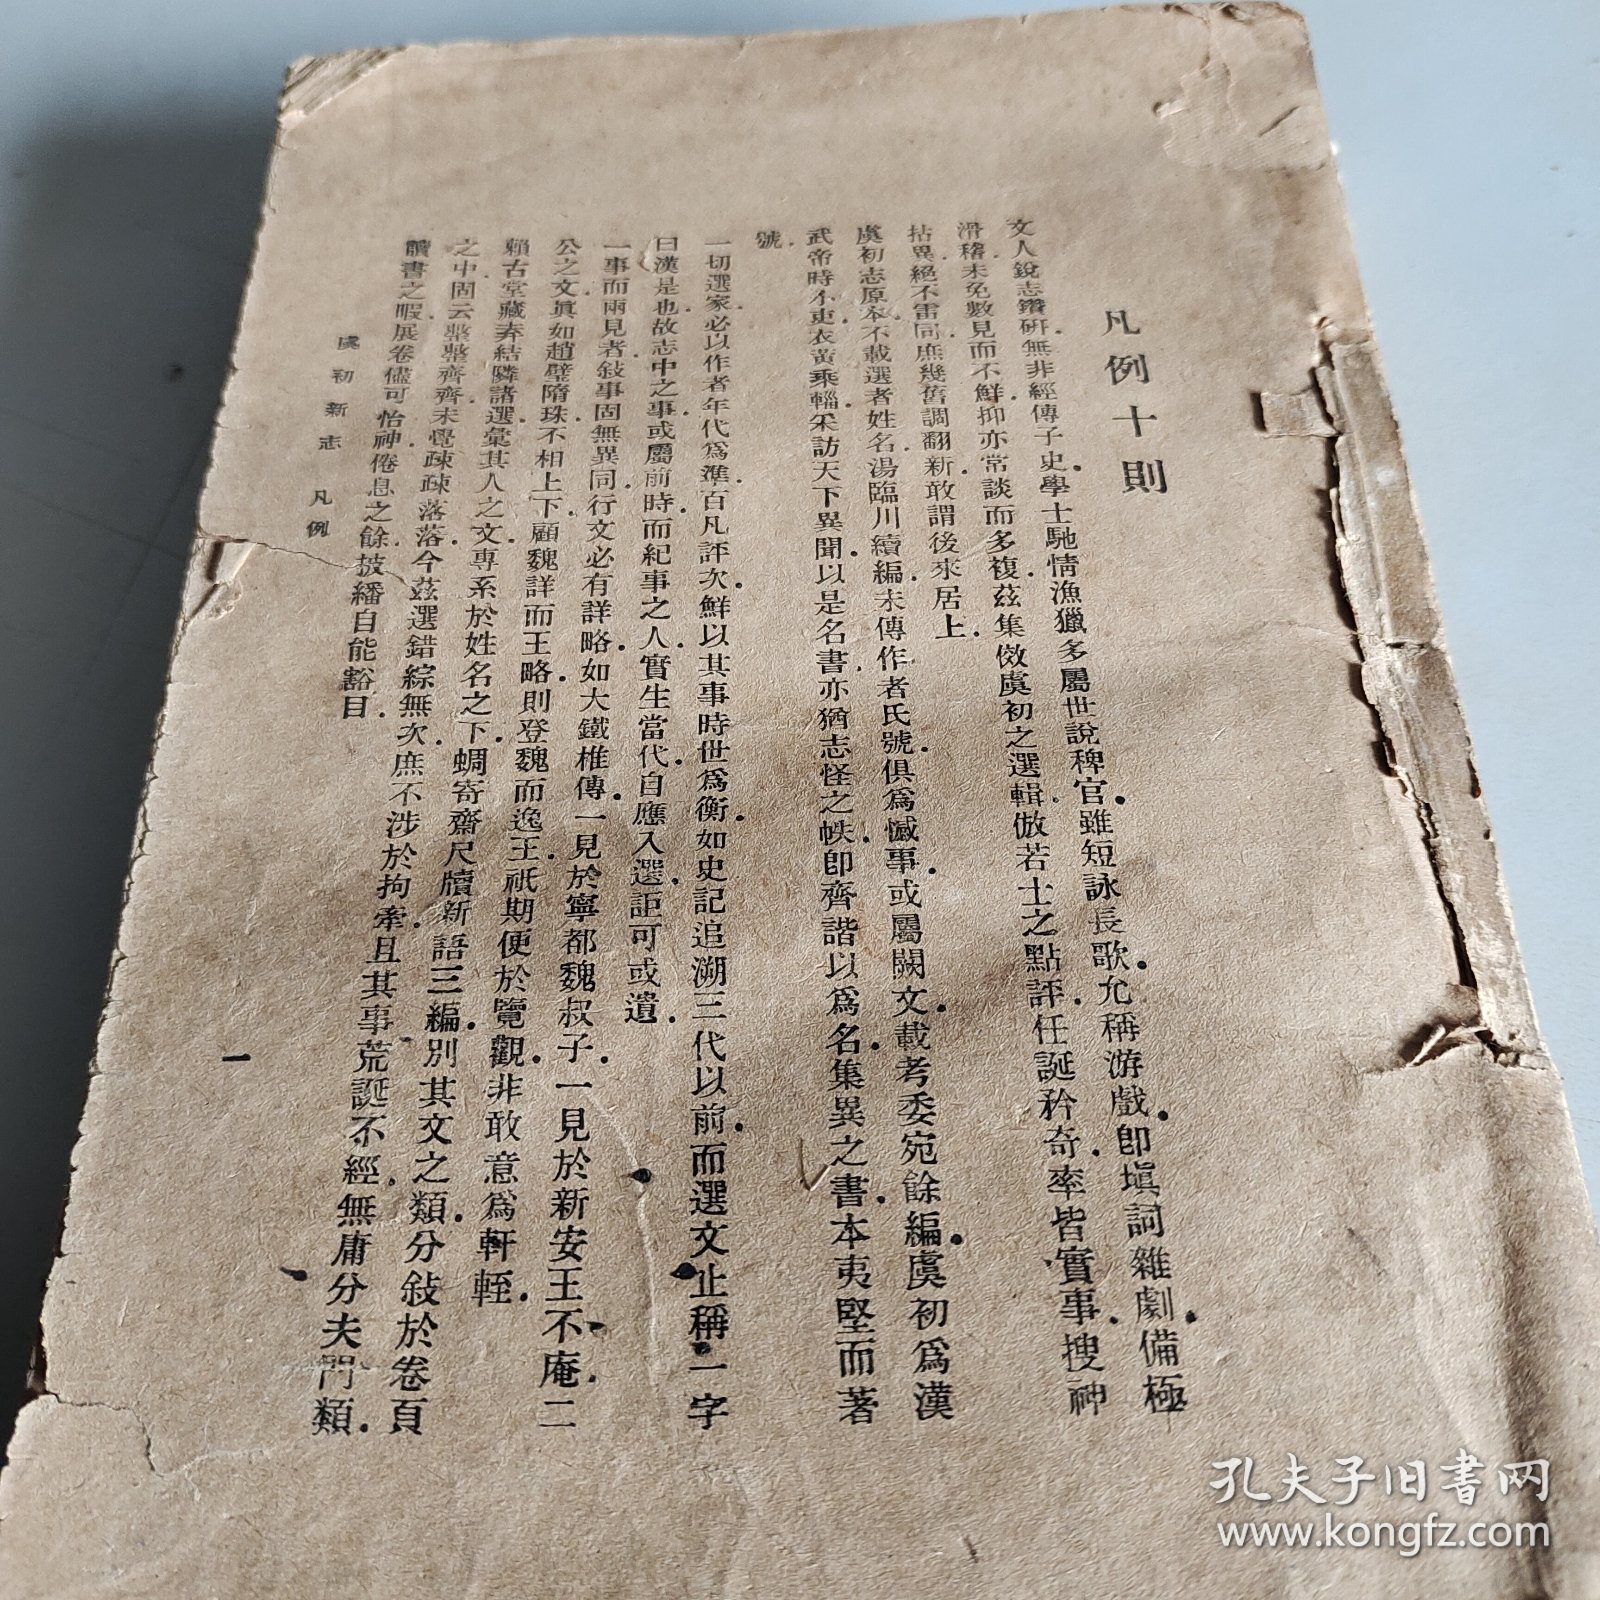 凡例十則
文人銳志鑽研.無非經傳子史.學士馳情漁獵.多屬世說稗官.雖短詠長歌.允稱游戲.卽塡詞雜劇.備極
滑稽.未免數見而不鮮.抑亦常談而多複.茲集倣虞初之選輯.倣若士之點評.任誕矜奇.率皆實事.搜神
拈異.絕不雷同.庶幾舊調翻新.敢謂後來居上.
虞初志原本.不載選者姓名.湯臨川續編.未傳作者氏號.俱爲憾事.或屬闕文.載考委宛餘編.虞初爲漢
武帝時小吏.衣黃乘輜.采訪天下異聞.以是名書.亦猶志怪之帙.卽齊諧以爲名.集異之書.本夷堅而著
號.
一切選家.必以作者年代爲準.百凡評次.鮮以其事時世爲衡.如史記追溯三代以前.而選文止稱一字
曰漢是也.故志中之事.或屬前時.而紀事之人.實生當代.自應入選.詎可或遺.
一事而兩見者.敍事固無異同.行文必有詳略.如大鐵椎傳.一見於寧都魏叔子.一見於新安王不庵.二
公之文.眞如趙璧隋珠.不相上下.顧魏詳而王略.則登魏而逸王.祇期便於覽觀.非敢意爲軒輊.
賴古堂藏弆結隣諸選.彙其人之文.專系於姓名之下.蜩寄齋尺牘新語三編.別其文之類.分敍於卷頁
之中.固云整整齊齊.未覺疎疎落落.今茲選錯綜無次.庶不涉於拘牽.且其事荒誕不經.無庸分夫門類.
讀書之暇.展卷儘可怡神.倦息之餘.披繙自能豁目.
虞初新志 凡例
一
孔夫子旧书网
www.kongfz.com